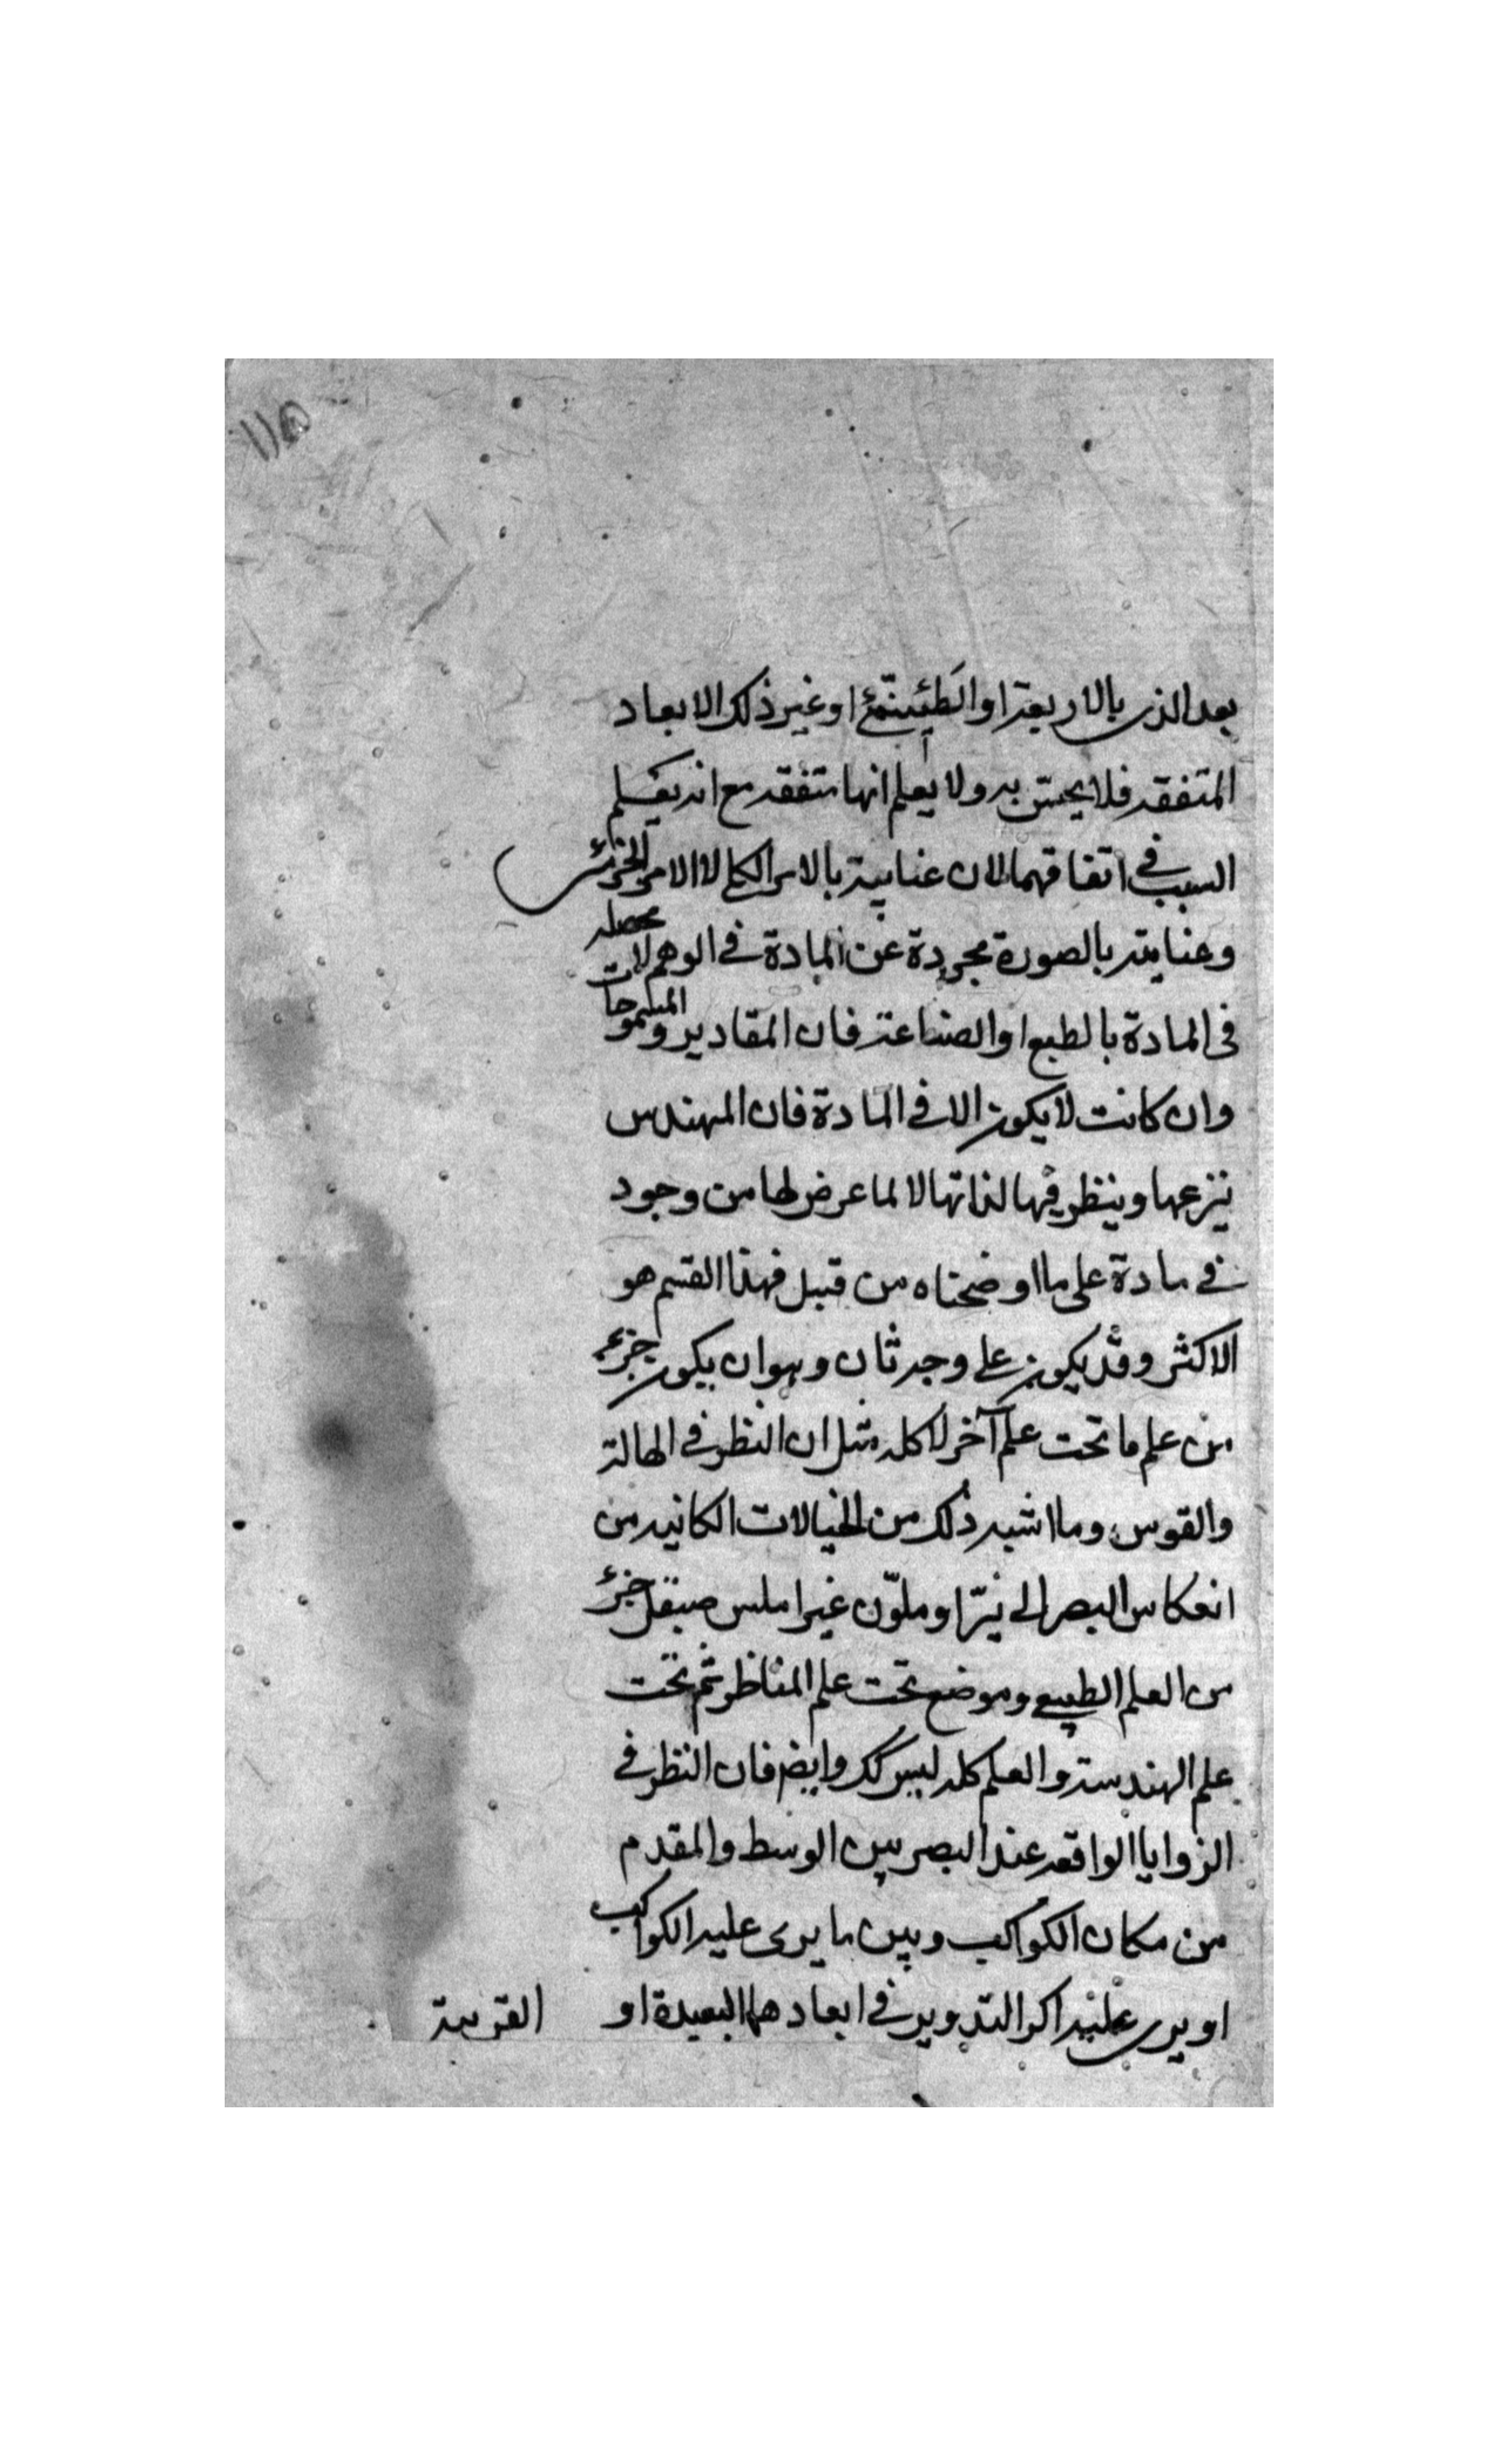 ١١٥
بعد الذى بالاربعة او الطنينى او غير ذلك الابعاد
المتفقه فلا يحس به ولا يعلم انها متفقه مع انه يعلم
السبب فى اتفاقهما لان عنايته بالامر الكلى لا الامر الجزئى
وعنايته بالصورة مجردة عن المادة فى الوهم لا محصله
فى المادة بالطبع او الصناعة فان المقادير و
وان كانت لا يكون الا فى المادة فان المهندس
ينزعها وينظر فيها لذاتها لا لما عرض لها من وجود
فى مادة على ما اوضحناه من قبل فهذا القسم هو
الاكثر وقد يكون على وجه ثان وهو ان يكون جزء
من علم ما تحت علم آخر لا كله مثل ان النظر فى الهالة
والقوس وما اشبه ذلك من الخيالات الكائنه من
انعكاس البصر الى نيّر او ملوّن غير املس صيقل جزء
من العلم الطبيعى وموضع تحت علم المناظر ثم تحت
علم الهندسة والعلم كله ليس كك وايضا فان النظر فى
الزوايا الواقعه عند البصر بين الوسط والمقدم
من مكان الكواكب وبين ما يرى عليه الكواكب
او يرى عليه اكر التدوير فى ابعادها البعيدة او
القريبة